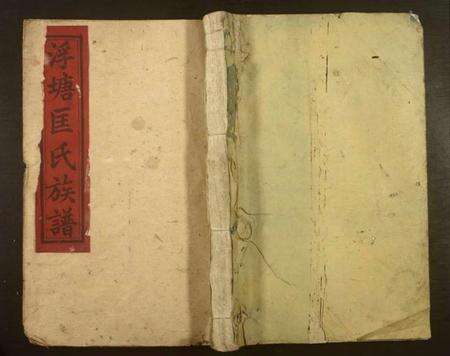 浮塘匡氏族譜